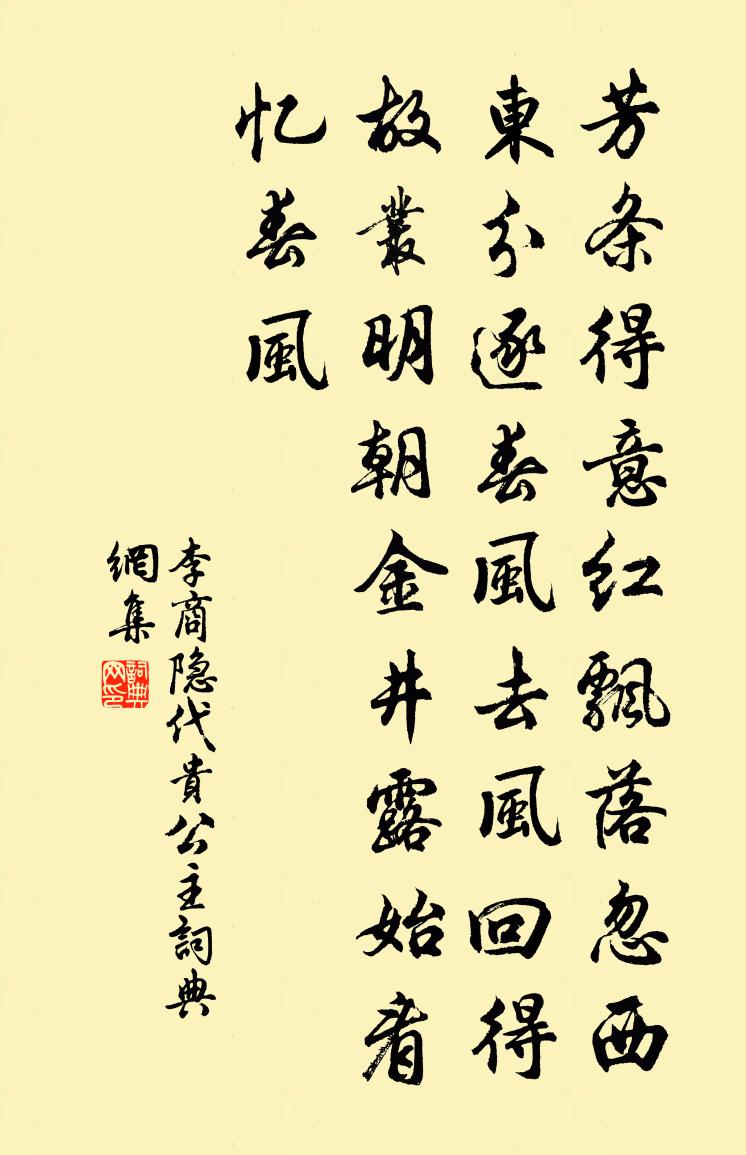 芳条得意红飘落忽西
東分逐春風去風回得
故叢明朝金井露始看
忆春風
李商隐代貴公主詞典
網集
詞典
网印